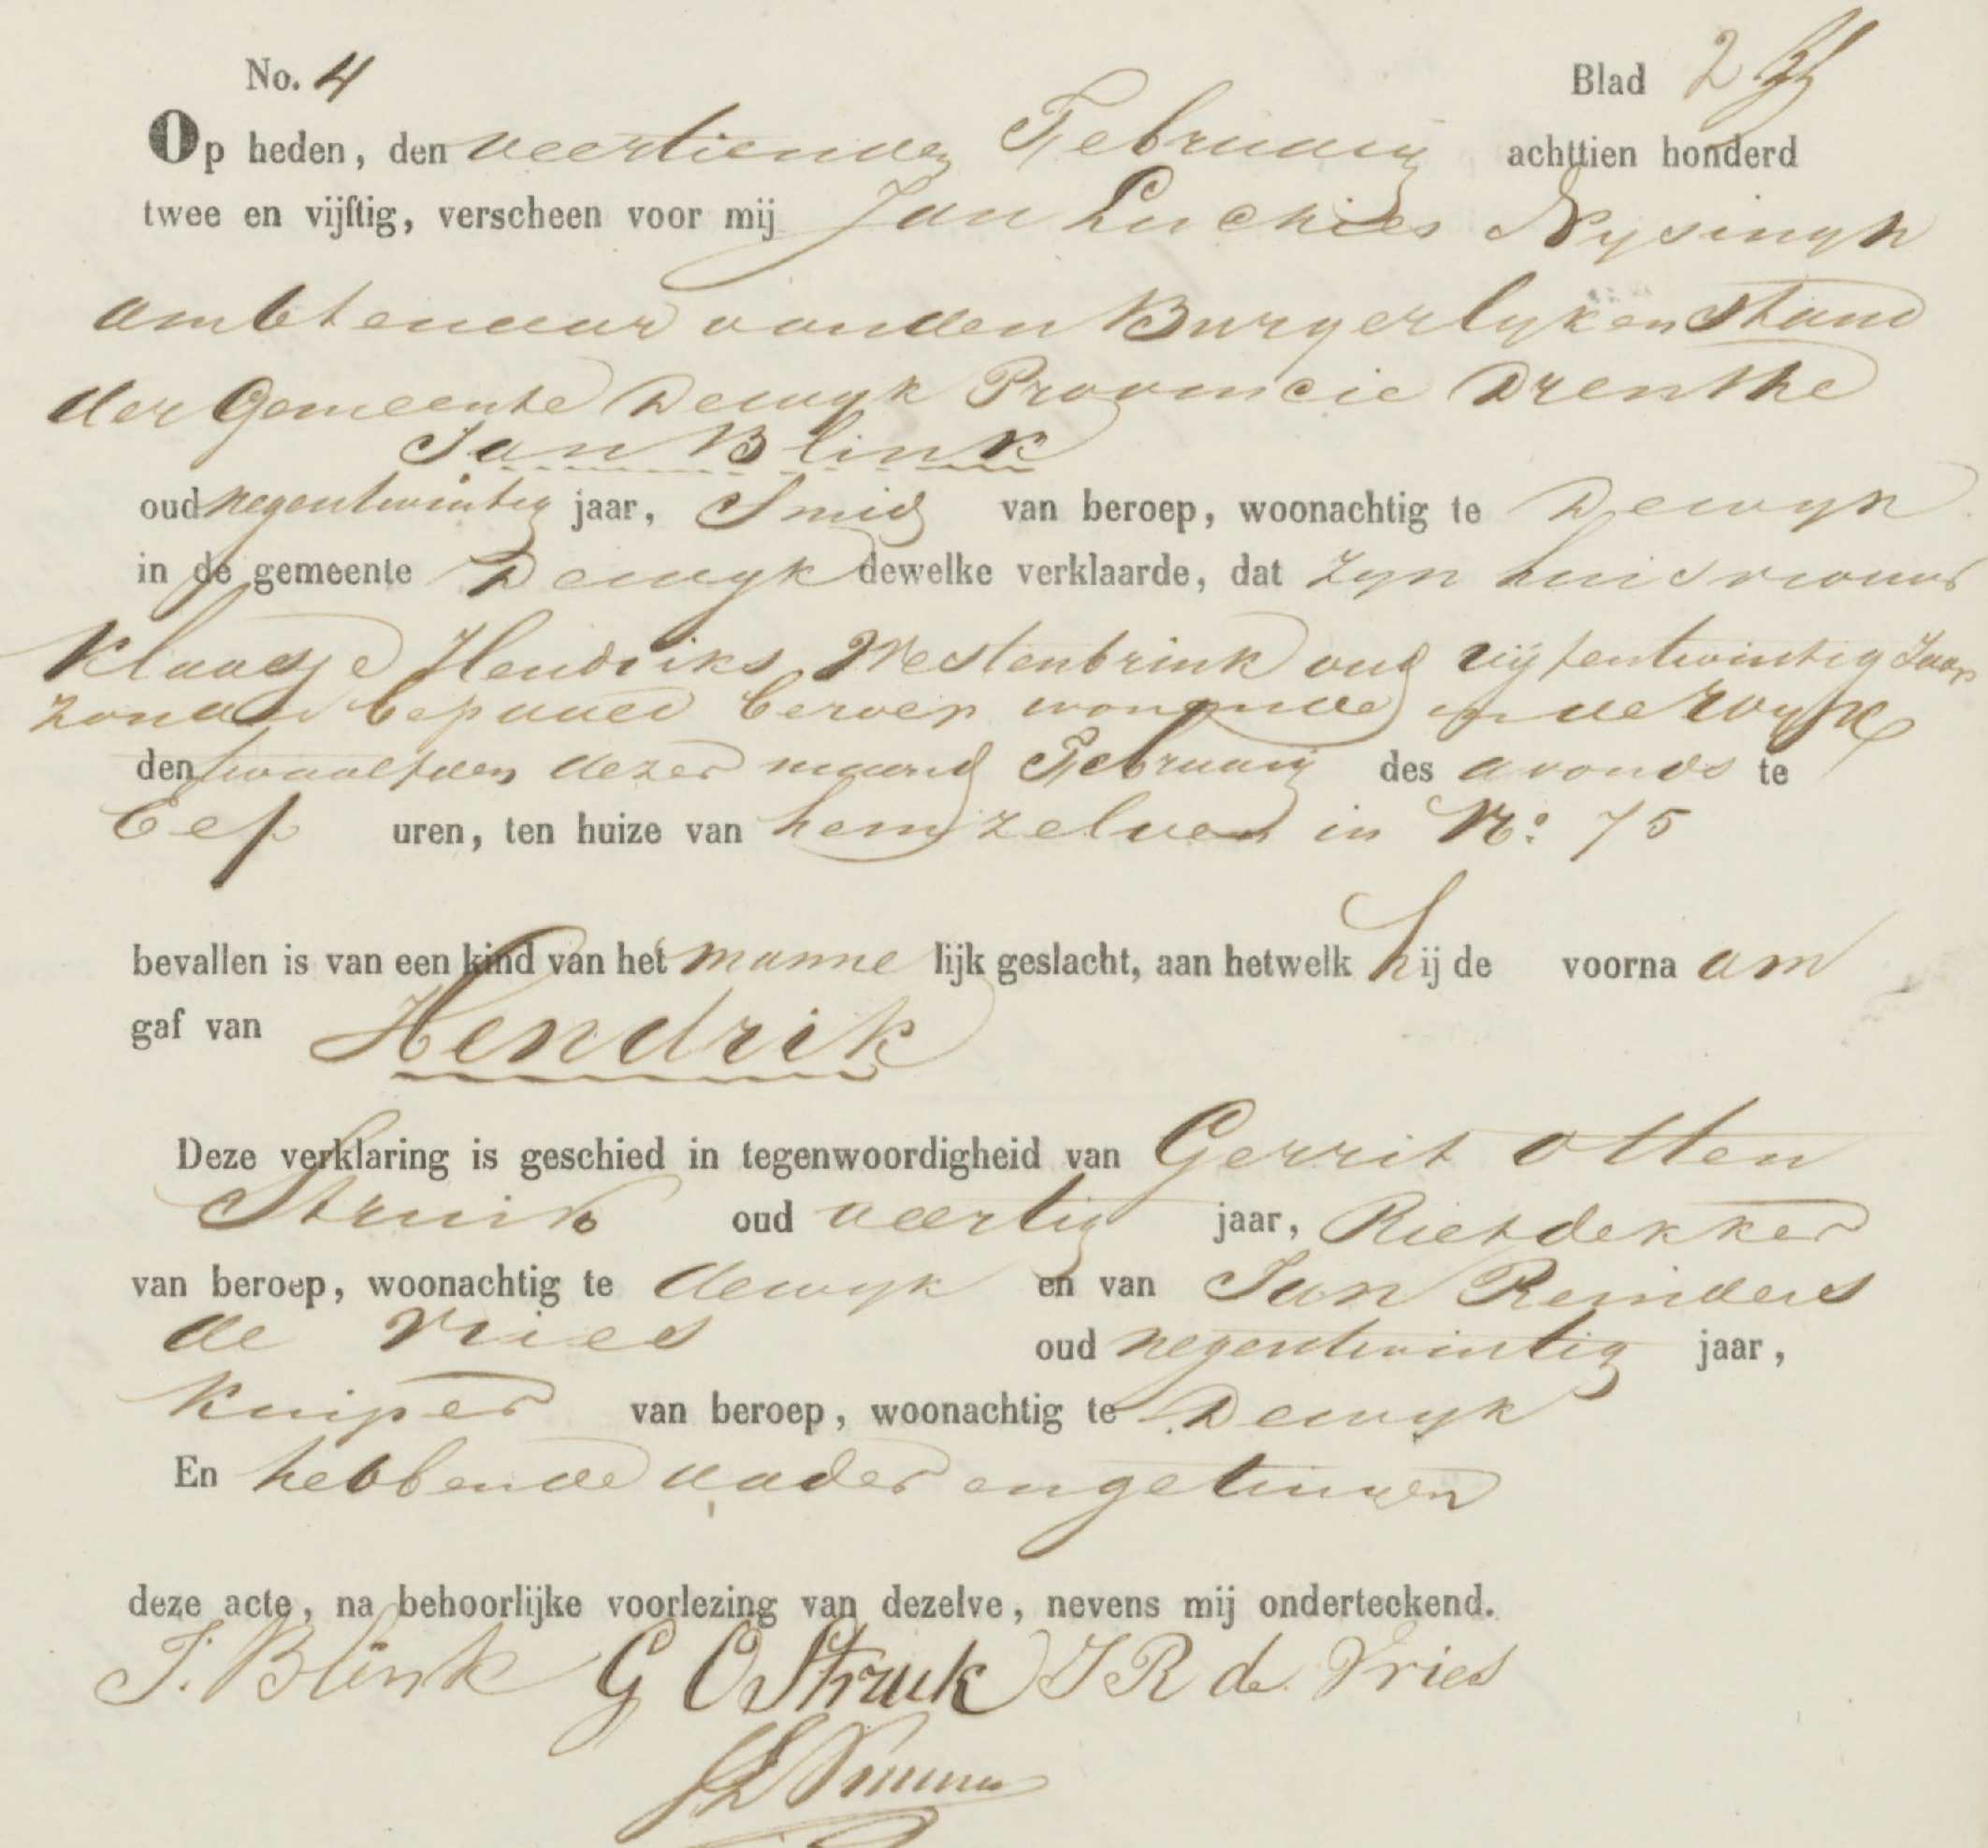 No. 4 Blad 2
Op heden, den veertienden February achttien honderd
twee en vijftig, verscheen voor mij Jan Luchies Nysingh
ambtenaar van den Burgerlyken Stand
der Gemeente Dewyk Provincie Drenthe
Jan Blink
oud negentwintig jaar, Smid van beroep, woonachtig te Dewyk
in de gemeente Dewyk dewelke verklaarde, dat zyn huisvrouw
Klaasje Hendriks Westenbrink oud vijfentwintig Jaar
zonder bepaald beroep wonende in de Wyk
den twaalfden dezer maand February des avonds te
Elf uren, ten huize van hemzelven in No: 75
bevallen is van een kind van het manne lijk geslacht, aan hetwelk hij de voorna am
gaf van Hendrik
Deze verklaring is geschied in tegenwoordigheid van Gerrit Otten
Struik oud veertig jaar, Rietdekker
van beroep, woonachtig te dewyk en van Jan Reinders
de Vries oud negentwintig jaar,
Kuiper van beroep, woonachtig te Dewyk
En hebbende vader en getuigen
deze acte, na behoorlijke voorlezing van dezelve, nevens mij onderteekend.
J. Blink G O Struik J R de Vries